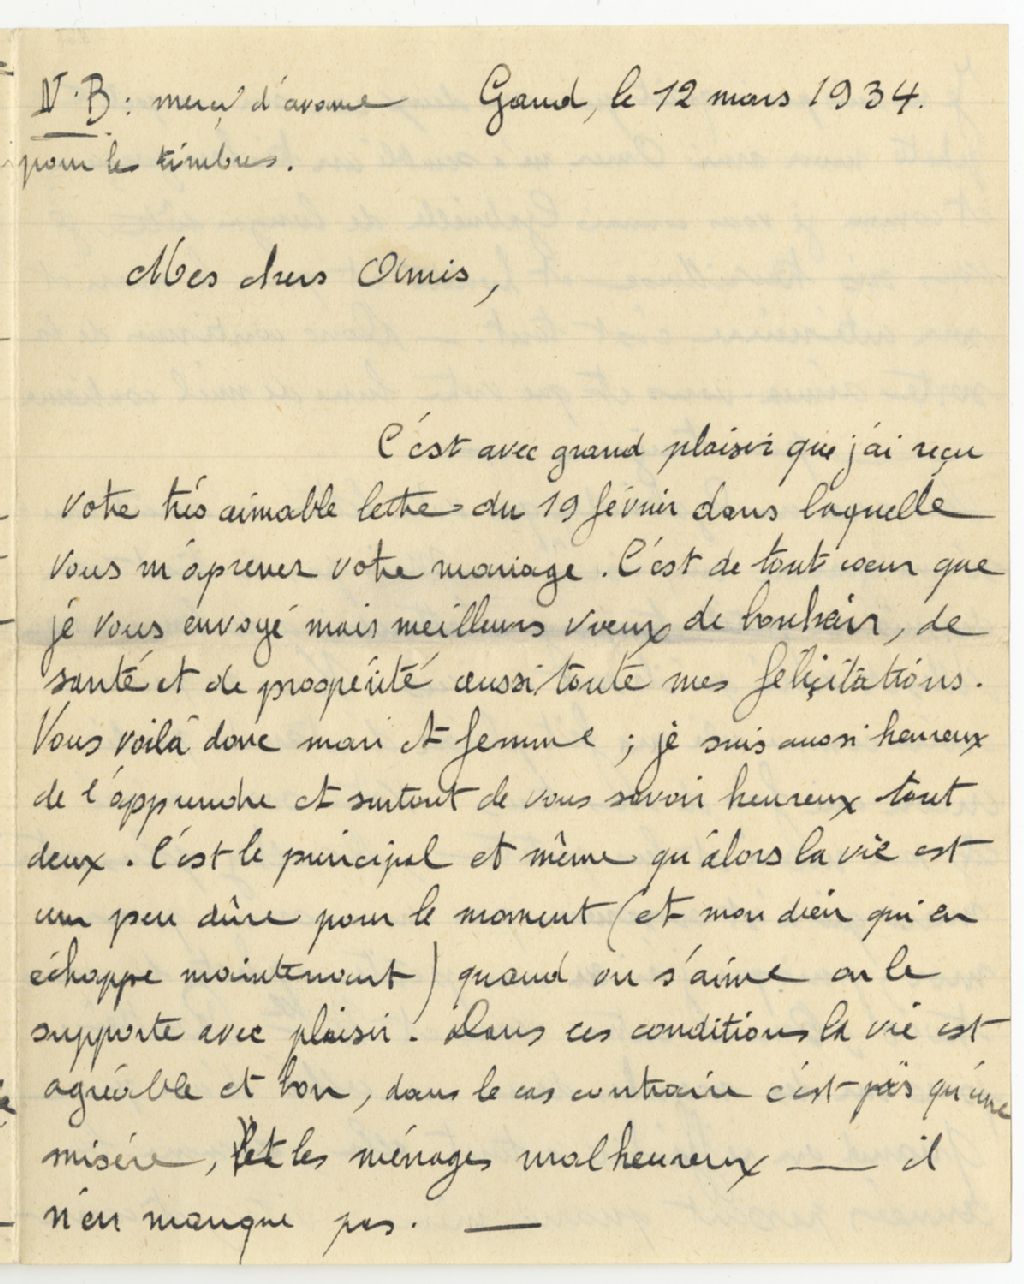 N.B: merci d'avance
pour les timbres.
Gand, le 12 mars 1934.
Mes chers Amis,
C'est avec grand plaisir que j'ai reçu
votre très aimable lettre du 19 février dans laquelle
vous m'áprenez votre mariage. C'est de tout coeur que
jé vous envoyé mais meilleurs voeux de bonhair, de
santé et de prospérité aussi toute mes félicitations.
Vous voilà donc mari et femme ; jé suis aussi heureux
de l'apprendre et surtout de vous savoir heureux tout
deux. C'est le principal et même qu'álors la vie est
un peu dûre pour le moment (et mon dieu qui en
échappe maintenant) quand on s'aime on le
supporte avec plaisir. Dans ces conditions la vie est
agréable et bon, dans le cas contraire c'est pas qu'une
misére, et les ménages malheureux — il
n'en manque pas. —